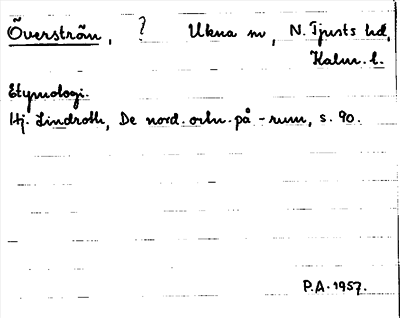 Överström, ? Ukna sn, N. Tjusts hd,
Kalm. l.
Etymologi.
Hj. Lindroth, De nord. ortn. på -rum, s. 90.
P.A. 1957.